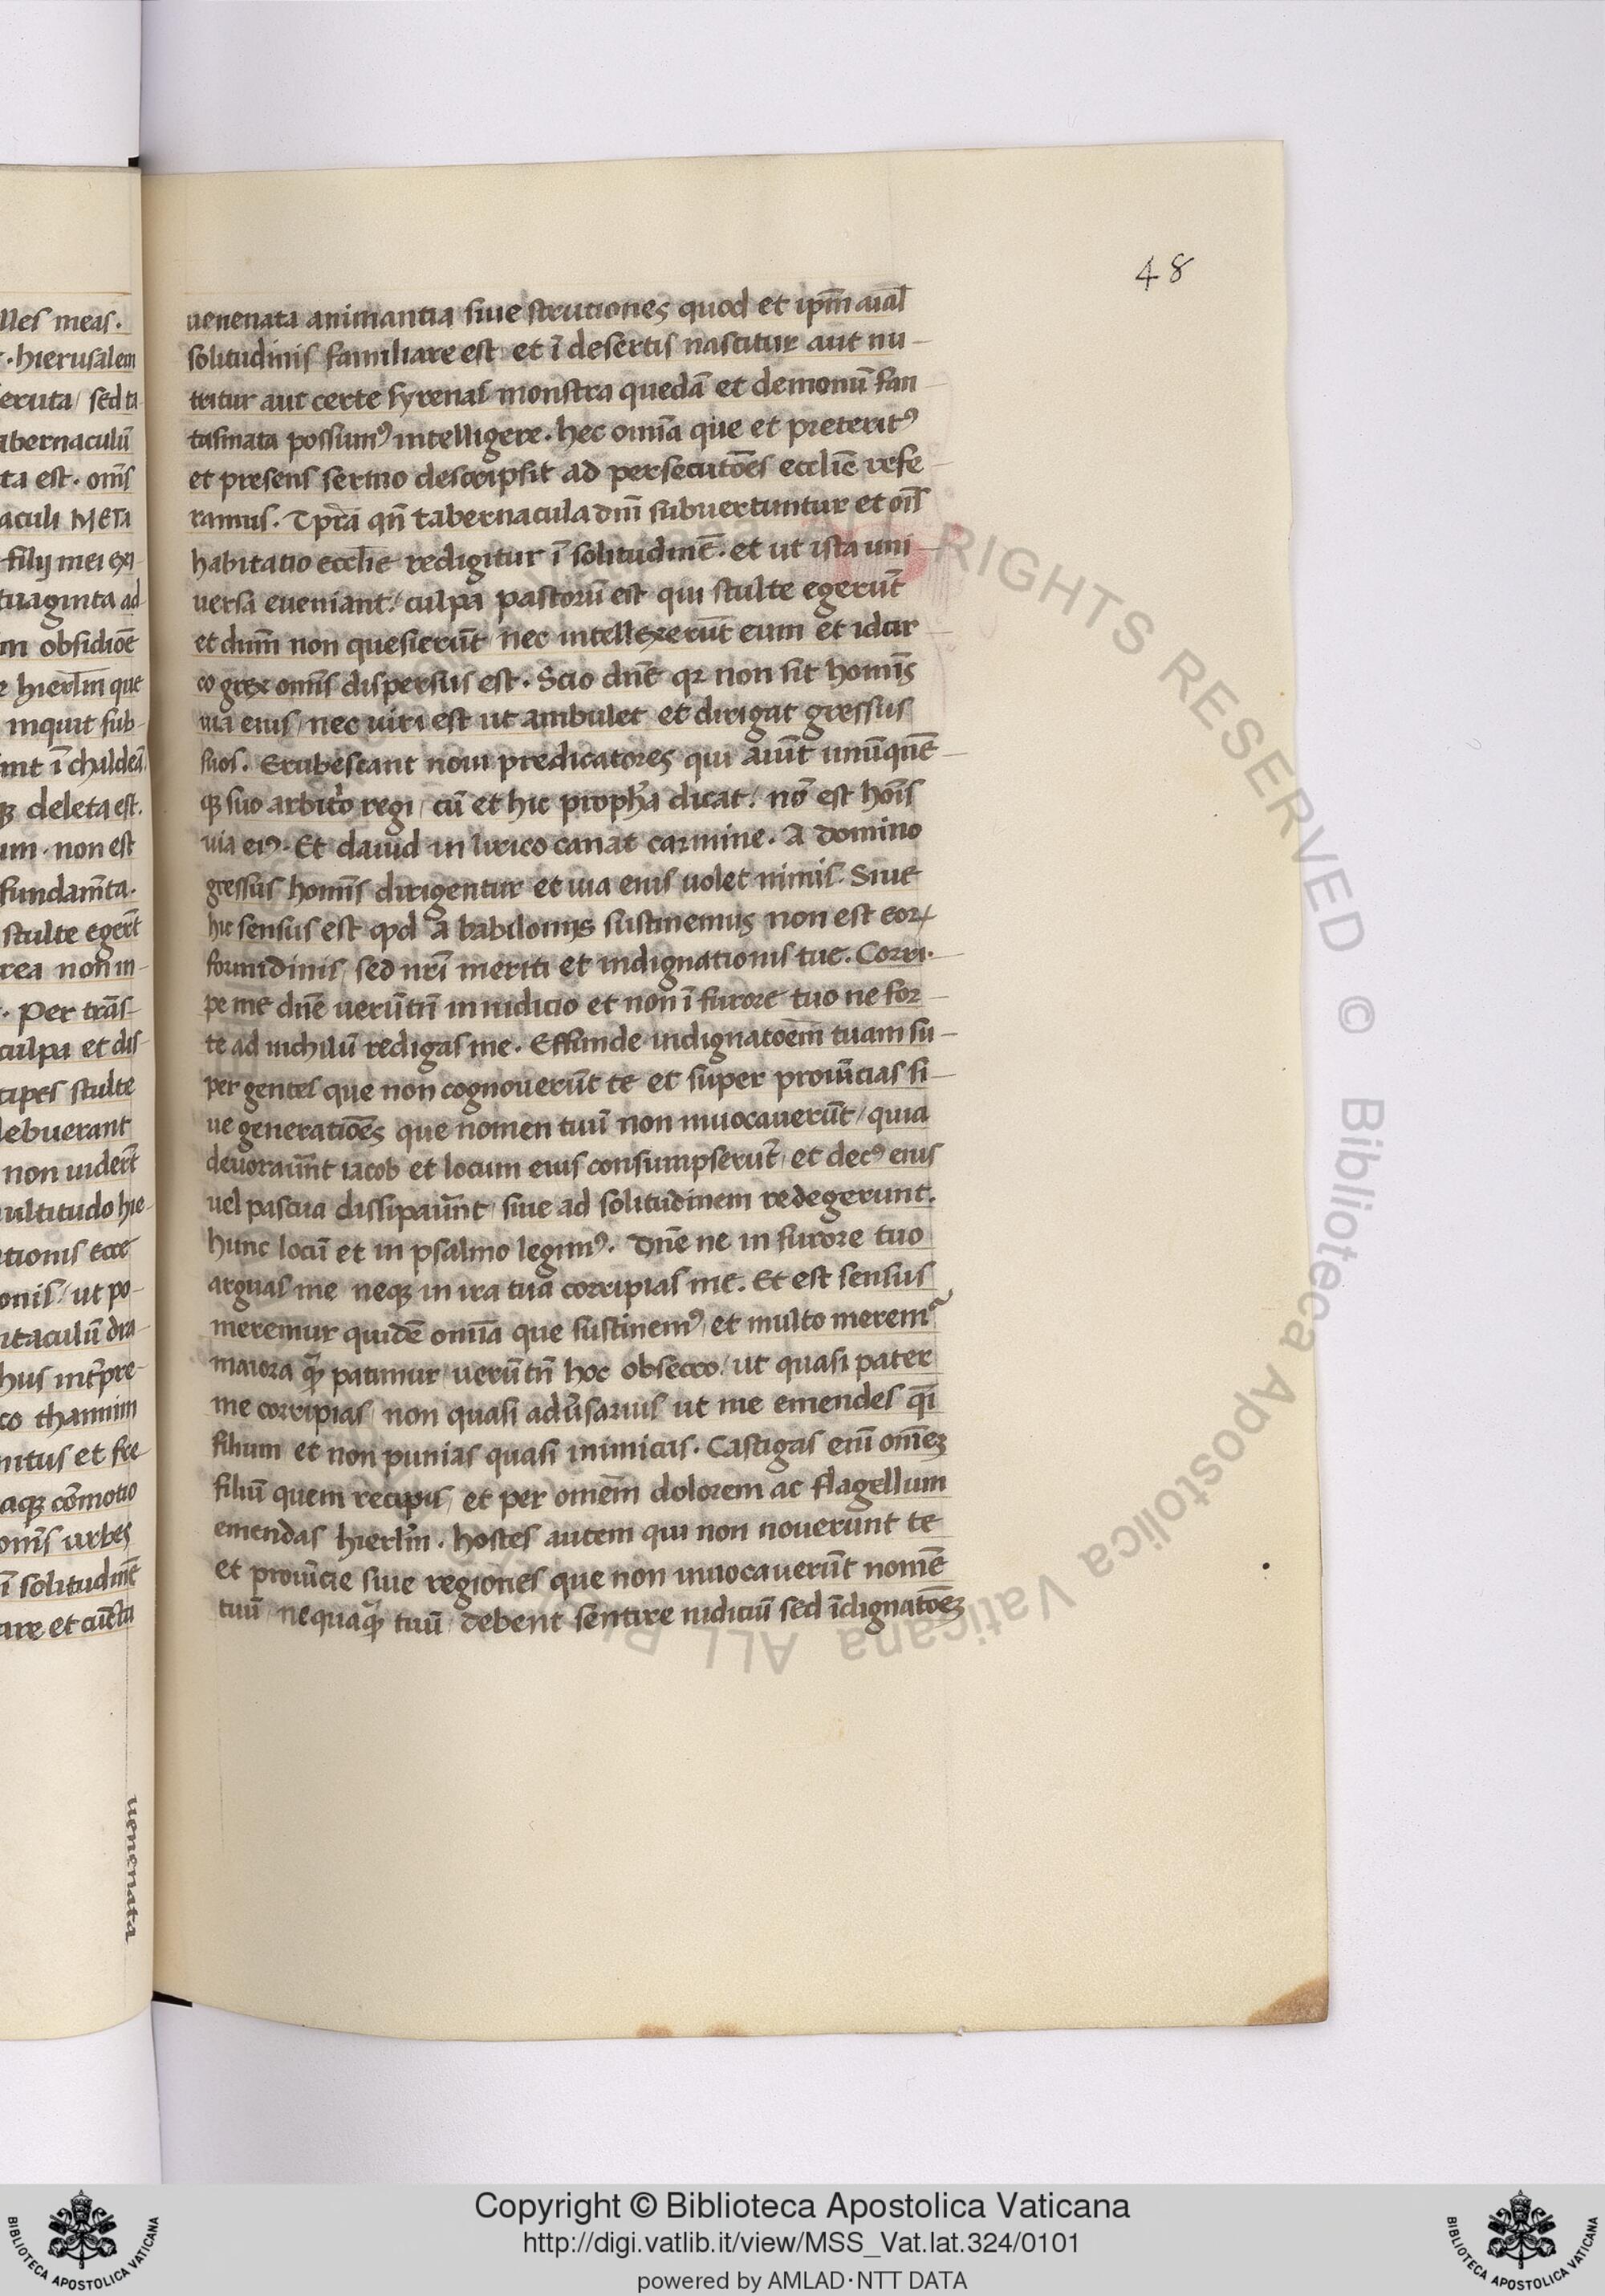 lles meas.
. hierusalem
eruta / sed ta
abernaculū
ta est. om̄s
aculi META
filij mei exi
tuaginta ad
m obsidiōē
e hierl̄m que
inquit sub-
int ī chaldeā
qꝫ deleta est.
um . non est
fundam̄ta.
stulte eger̄t
rea non in-
. Per trās-
culpa et dis-
cipes stulte
debuerant
non uider̄t
ultitudo hie-
ationis ecce
onis / ut po-
itaculū dra-
hus int̄pre-
co thannim
nitus et fre
aqꝫ cōmotio
om̄s urbes
ī solitudinē
are et cūcta
uenenata
48
uenenata animantia siue strutiones quod et ip̄m aīal
solitudinis familiare est et ī desertis nascitur aut nu-
tritur aut certe syrenas monstra quedā et demonū fan
tasmata possumꝰ intelligere . hec omīa que et preteritꝰ
et presens sermo descripsit ad persecutōes eccl̄ie refe
ramus . qn̄ tabernacula dn̄i subuertuntur et oīs
habitatio eccl̄ie redigitur ī solitudinē . et ut ista uni-
versa eueniant / culpa pastorū est qui stulte egerūt
et dūm non quesierūt nec intellexerūt eum et idcir
co grex om̄is dispersus est . Scio dn̄e qꝛ non sit homīs
uia eius / nec uiri est ut ambulet et dirigat gressus
suos . Erubescant noui predicatores qui aiūt unūquē
qꝫ suo arbit̄o regi / cū et hic proph̄a dicat / nō est hoīs
uia eiꝰ . Et dauid in lirico canat carmine . A domino
gressus homīs dirigentur et uia eius uolet nimis . Siue
hic sensus est qd̄ a babilonijs sustinemus non est eorꝝ
formidinis / sed nr̄i meriti et indignationis tue . Corri-
pe me dn̄e uerūtn̄ in iudicio et non ī furore tuo ne for-
te ad nichilū redigas me . Effunde indignatōem tuam su-
per gentes que non cognouerūt te et super prouīcias si-
ue generatiōes que nomen tuū non inuocauerūt / quia
deuorauer̄nt iacob et locum eius consumpserūt / et decꝰ eius
uel pascua dissipauer̄nt / siue ad solitudinem redegerunt .
hunc locū et in psalmo legimꝰ . Dn̄e ne in furore tuo
arguas me neqꝫ in ira tua corripias me . Et est sensus
meremur quidē omīa que sustinemꝰ / et multo merem᷑
maiora qᷓꝫ patimur / uerūtn̄ hoc obsecro / ut quasi pater
me corripias / non quasi adūsarius ut me emendes qͣi
filium et non punias quasi inimicus . Castigas enī omēꝫ
filiū quem recipis / et per omēm dolorem ac flagellum
emendas hierl̄m . hostes autem qui non nouerunt te
et prouīcie siue regiones que non inuocauerūt nomē
tuū / nequaqᷓꝫ tuū / debent sentire iudiciū sed īdignatōeꝫ
ALL RIGHTS RESERVED © Biblioteca Apostolica Vaticana
Copyright © Biblioteca Apostolica Vaticana
http://digi.vatlib.it/view/MSS_Vat.lat.324/0101
powered by AMLAD·NTT DATA
BIBLIOTECA APOSTOLICA VATICANA
BIBLIOTECA APOSTOLICA VATICANA